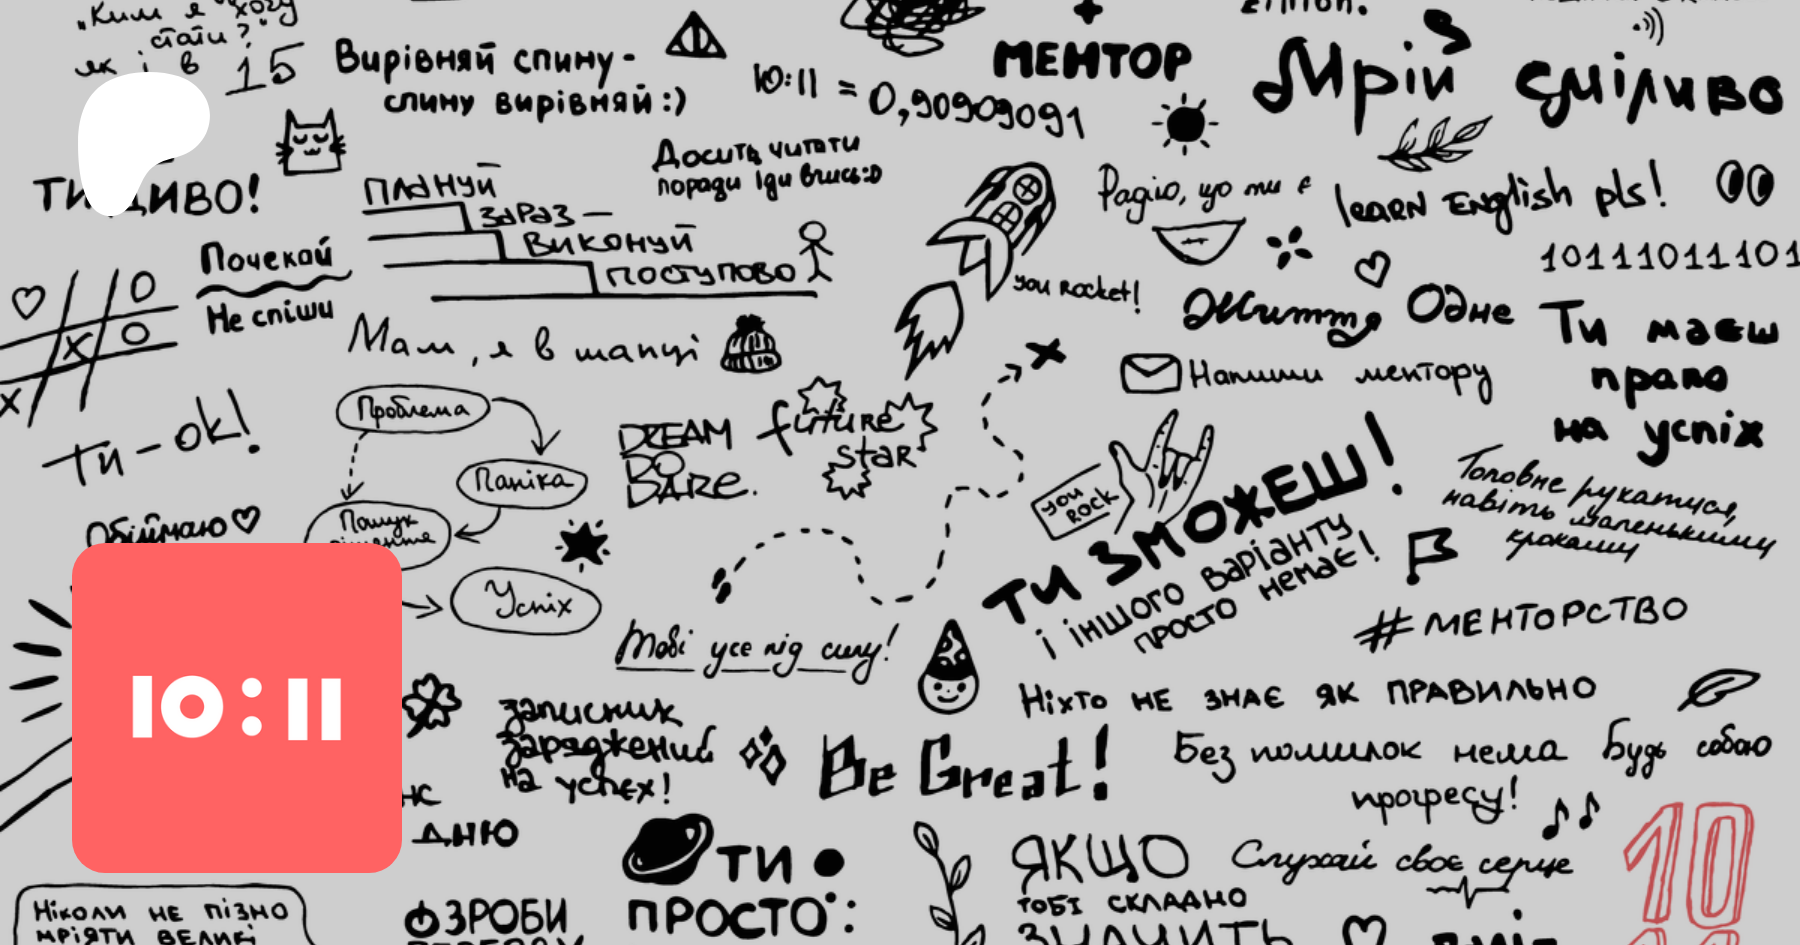 „Ким я хочу
стати?"
як і в 15
Вирівняй спину -
спину вирівняй :)
10:11 = 0,90909091
МЕНТОР
Мрій сміливо
Досить читати
поради іди вчись:D
ТИ ДИВО!
ПЛАНУЙ
ЗАРАЗ —
ВИКОНУЙ
ПОСТУПОВО
Радію, що ти є
learn English pls!
10111011101
Почекай
Не спіши
you Rocket!
Життя Одне
Ти маєш
право
на успіх
Мам, я в шапці
Напиши ментору
Ти - ok!
Проблема
Паніка
Пошук
рішення
Успіх
DREAM
DO
DARE.
future
star
you
ROCK
ТИ ЗМОЖЕШ!
і іншого варіанту
просто немає!
Головне рухатися,
навіть маленькими
кроками
Обіймаю
#МЕНТОРСТВО
Тобі усе під силу!
10:11
Ніхто не знає як правильно
записник
заряджений
на успіх!
Be Great!
Без помилок нема
прогресу!
Будь собою
ДНЮ
ТИ
ПРОСТО
ЯКЩО
ТОБІ СКЛАДНО
Слухай своє серце
10
Ніколи не пізно
мріяти великі
ЗРОБИ